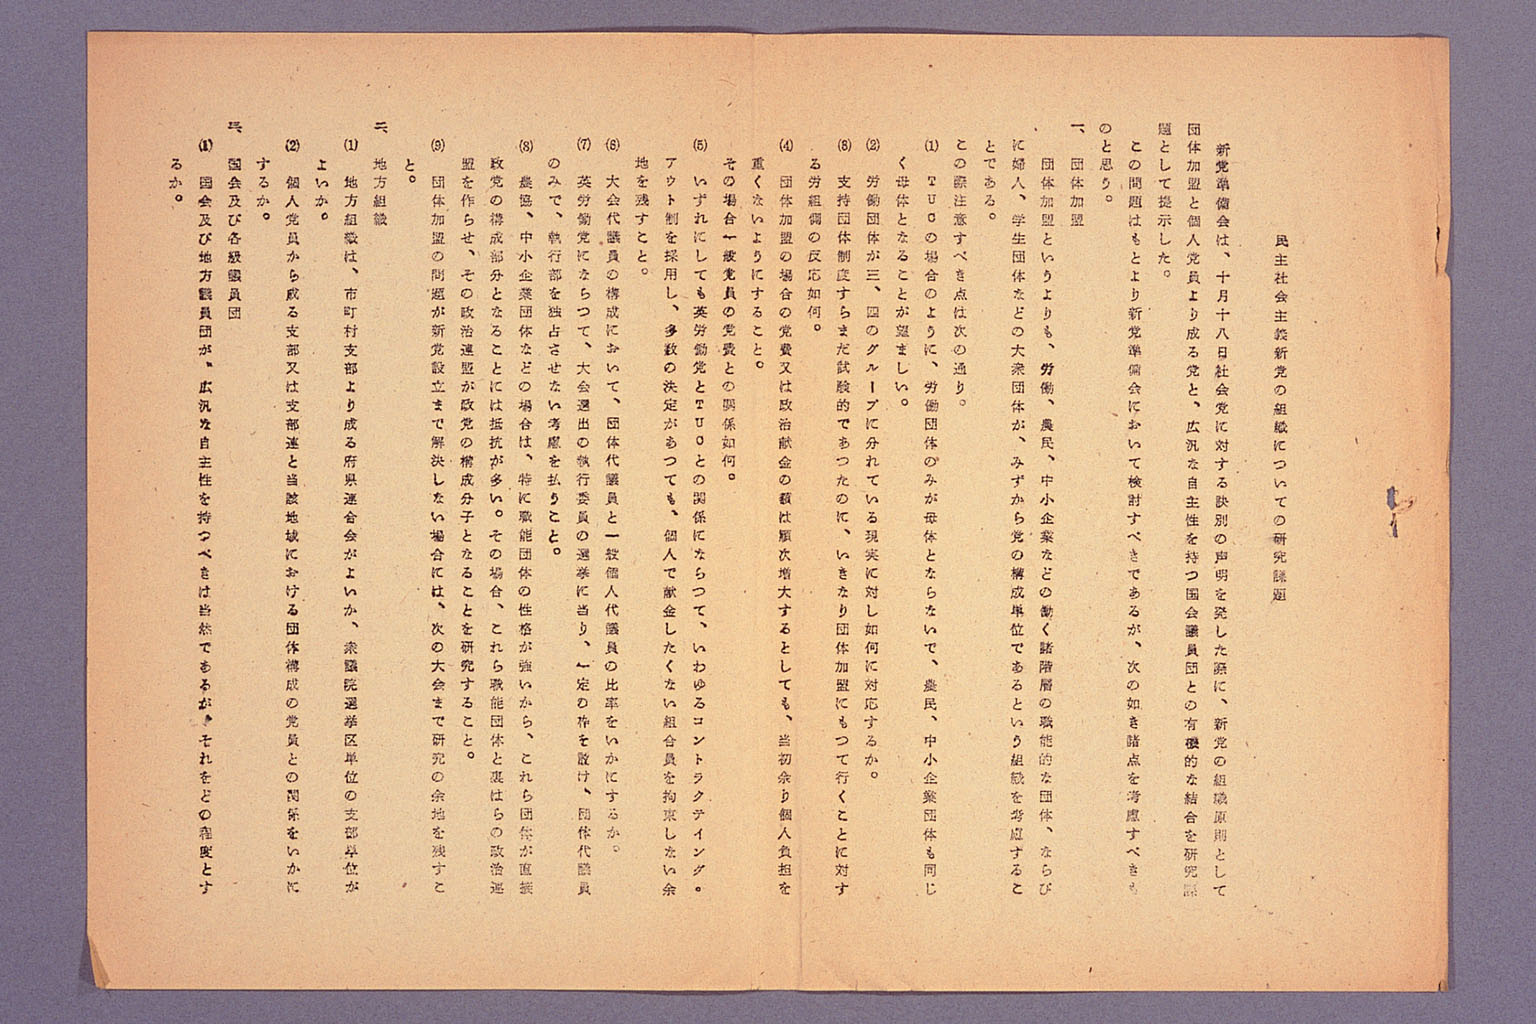 民主社会主義新党の組織についての研究課題
新党準備会は、十月十八日社会党に対する訣別の声明を発した際に、新党の組織原則として
団体加盟と個人党員より成る党と、広汎な自主性を持つ国会議員団との有機的な結合を研究課
題として提示した。
この問題はもとより新党準備会において検討すべきであるが、次の如き諸点を考慮すべきも
のと思う。
一、団体加盟
団体加盟というよりも、労働、農民、中小企業などの働く諸階層の職能的な団体、ならび
に婦人、学生団体などの大衆団体が、みずから党の構成単位であるという組織を考慮するこ
とである。
この際注意すべき点は次の通り。
(1) TUCの場合のように、労働団体のみが母体とならないで、農民、中小企業団体も同じ
く母体となることが望ましい。
(2) 労働団体が三、四のグループに分れている現実に対し如何に対応するか。
(3) 支持団体制度すらまだ試験的であつたのに、いきなり団体加盟にもつて行くことに対す
る労組側の反応如何。
(4) 団体加盟の場合の党費又は政治献金の額は順次増大するとしても、当初余り個人負担を
重くないようにすること。
その場合一般党員の党費との関係如何。
(5) いずれにしても英労働党とTUCとの関係にならつて、いわゆるコントラクテイング・
アウト制を採用し、多数の決定があつても、個人で献金したくない組合員を拘束しない余
地を残すこと。
(6) 大会代議員の構成において、団体代議員と一般個人代議員の比率をいかにするか。
(7) 英労働党にならつて、大会選出の執行委員の選挙に当り、一定の枠を設け、団体代議員
のみで、執行部を独占させない考慮を払うこと。
(8) 農協、中小企業団体などの場合は、特に職能団体の性格が強いから、これら団体が直接
政党の構成部分となることには抵抗が多い。その場合、これら職能団体と裏はらの政治連
盟を作らせ、その政治連盟が政党の構成分子となることを研究すること。
(9) 団体加盟の問題が新党設立まで解決しない場合には、次の大会まで研究の余地を残すこ
と。
二、地方組織
(1) 地方組織は、市町村支部より成る府県連合会がよいか、衆議院選挙区単位の支部単位が
よいか。
(2) 個人党員から成る支部又は支部連と当該地域における団体構成の党員との関係をいかに
するか。
三、国会及び各級議員団
(1) 国会及び地方議員団が、広汎な自主性を持つべきは当然であるが、それをどの程度とす
るか。